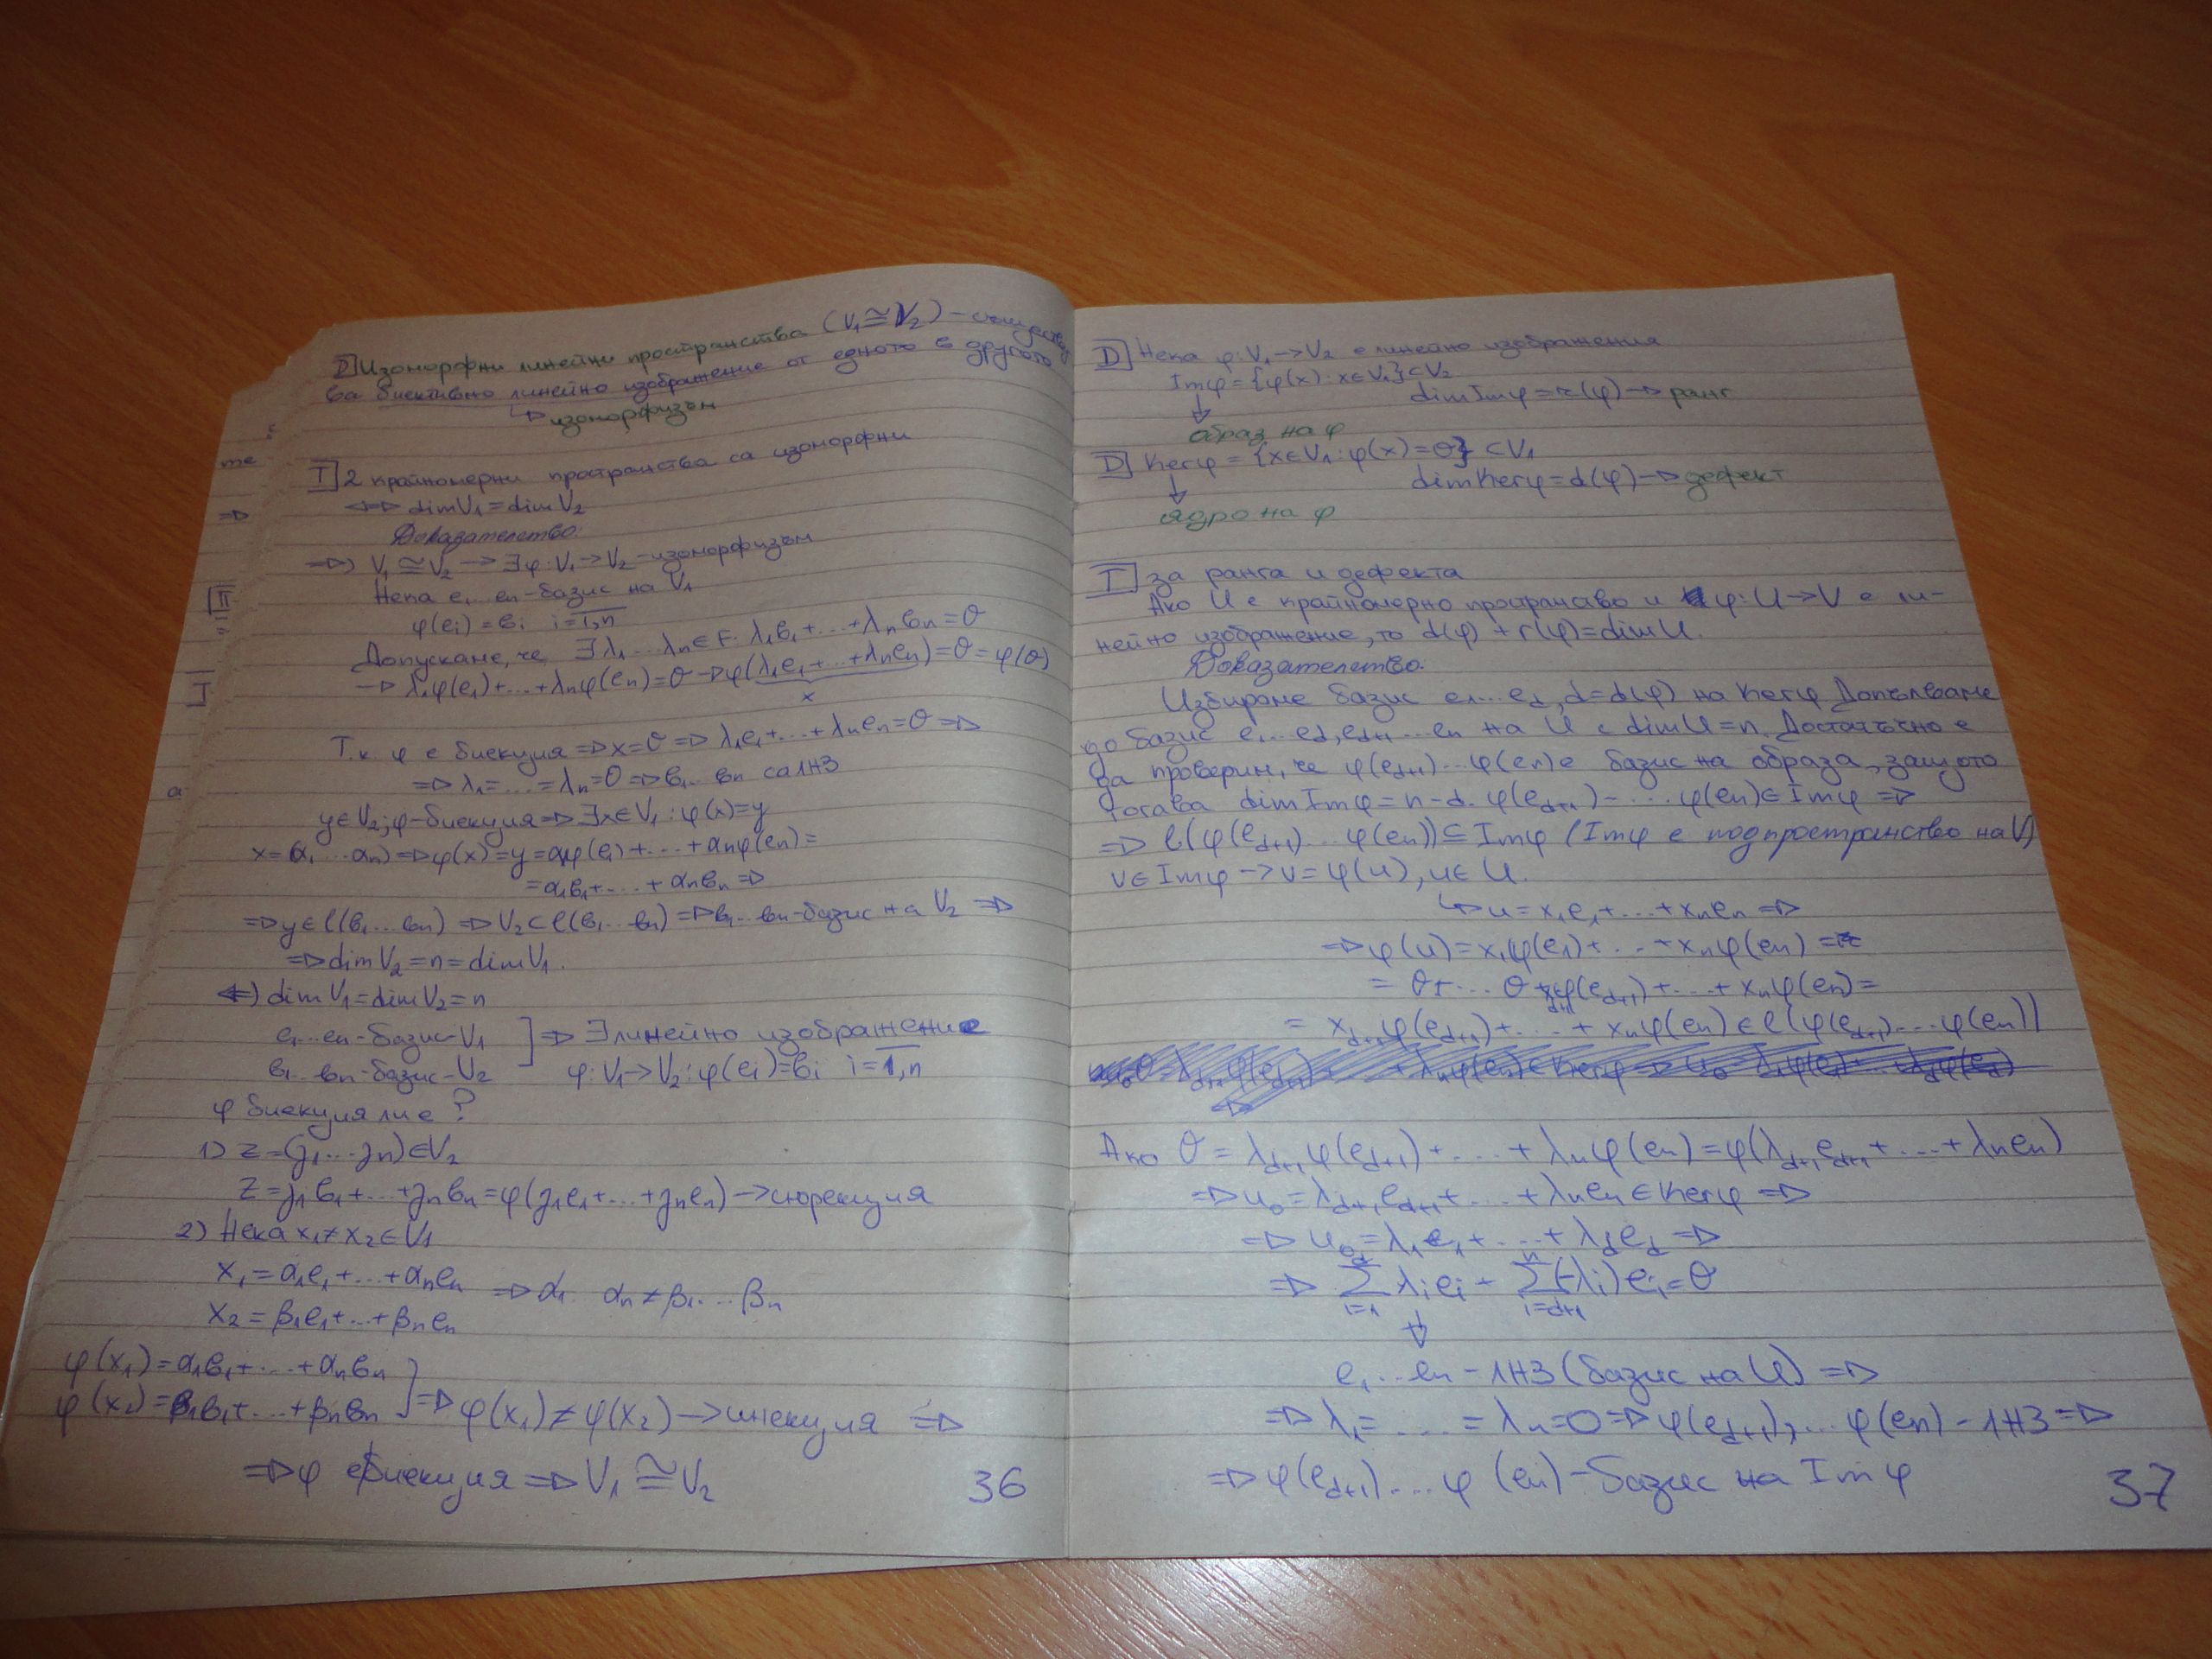 D Изоморфни линейни пространства (V₁≅V₂) – съществу
ва биективно линейно изображение от едното в другото
↳ изоморфизъм
T 2 крайномерни пространства са изоморфни
⇔ dimV₁=dimV₂
Доказателство:
⇒) V₁≅V₂ → ∃φ:V₁→V₂ – изоморфизъм
Нека e₁ eₙ-базис на V₁
φ(eᵢ)=вᵢ i=1,n
Допускаме, че ∃λ₁...λₙ∈F: λ₁в₁+...+λₙвₙ=θ
→ λ₁φ(e₁)+...+λₙφ(eₙ)=θ → φ(λ₁e₁+...+λₙeₙ)=θ=φ(θ)
x
Т.к. φ е биекция ⇒ x=θ ⇒ λ₁e₁+...+λₙeₙ=θ ⇒
⇒ λ₁=...=λₙ=0 ⇒ в₁...вₙ са ЛНЗ
y∈V₂; φ-биекция ⇒ ∃x∈V₁: φ(x)=y
x=(α₁...αₙ) ⇒ φ(x)=y=α₁φ(e₁)+...+αₙφ(eₙ)=
=α₁в₁+...+αₙвₙ ⇒
⇒ y∈ℓ(в₁...вₙ) ⇒ V₂⊂ℓ(в₁...вₙ) ⇒ в₁...вₙ-базис на V₂ ⇒
⇒ dimV₂=n=dimV₁.
⇐) dimV₁=dimV₂=n
e₁...eₙ-базис-V₁ ] ⇒ ∃ линейно изображение
в₁...вₙ-базис-V₂ φ:V₁→V₂: φ(eᵢ)=вᵢ i=1,n
φ биекция ли е?
1) z=(γ₁...γₙ)∈V₂
z=γ₁в₁+...+γₙвₙ=φ(γ₁e₁+...+γₙeₙ) → сюрекция
2) Нека x₁≠x₂∈V₁
x₁=α₁e₁+...+αₙeₙ ⇒ α₁...αₙ≠β₁...βₙ
x₂=β₁e₁+...+βₙeₙ
φ(x₁)=α₁в₁+...+αₙвₙ
φ(x₂)=β₁в₁+...+βₙвₙ ] ⇒ φ(x₁)≠φ(x₂) → инекция ⇒
⇒ φ е биекция ⇒ V₁≅V₂
36
D Нека φ:V₁→V₂ е линейно изображения
Imφ={φ(x): x∈V₁}⊂V₂
dimImφ=r(φ) → ранг
образ на φ
D Kerφ={x∈V₁: φ(x)=θ}⊂V₁
dimKerφ=d(φ) → дефект
ядро на φ
T за ранга и дефекта
Ако U е крайномерно пространсво и φ:U→V е ли-
нейно изображение, то d(φ)+r(φ)=dimU.
Доказателство:
Избираме базис e₁...e_d, d=d(φ) на Kerφ. Допълваме
до базис e₁...e_d, e_{d+1}...eₙ на U с dimU=n. Достатъчно е
да проверим, че φ(e_{d+1})...φ(eₙ) е базис на образа, защото
тогава dimImφ=n-d. φ(e_{d+1})-...φ(eₙ)∈Imφ ⇒
⇒ ℓ(φ(e_{d+1})...φ(eₙ))⊆Imφ (Imφ е подпространство на V)
v∈Imφ → v=φ(u), u∈U.
↳ u=x₁e₁+...+xₙeₙ ⇒
⇒ φ(u)=x₁φ(e₁)+...+xₙφ(eₙ)=
=θ+...θ+x_{d+1}φ(e_{d+1})+...+xₙφ(eₙ)=
=x_{d+1}φ(e_{d+1})+...+xₙφ(eₙ)∈ℓ(φ(e_{d+1})...φ(eₙ))
Ако θ=λ_{d+1}φ(e_{d+1})+...+λₙφ(eₙ)=φ(λ_{d+1}e_{d+1}+...+λₙeₙ)
⇒ u₀=λ_{d+1}e_{d+1}+...+λₙeₙ∈Kerφ ⇒
⇒ u₀=λ₁e₁+...+λ_d e_d ⇒
⇒ Σ_{i=1}^{d} λᵢeᵢ + Σ_{i=d+1}^{n} (-λᵢ)eᵢ=θ
e₁...eₙ – ЛНЗ (базис на U) ⇒
⇒ λ₁=...=λₙ=0 ⇒ φ(e_{d+1}),...φ(eₙ) – ЛНЗ ⇒
⇒ φ(e_{d+1})...φ(eₙ) – базис на Imφ
37